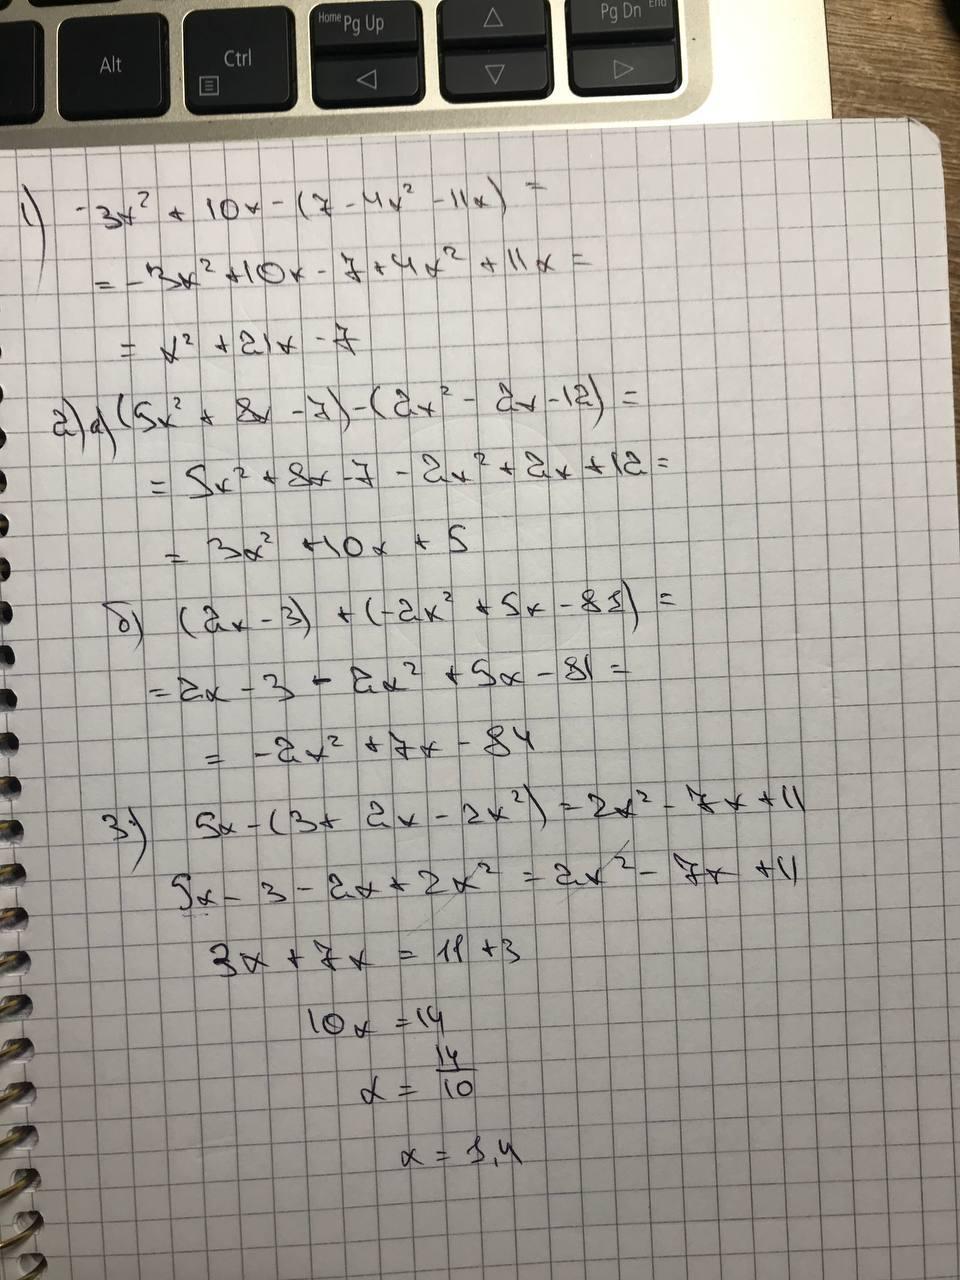 Alt
Ctrl
Home Pg Up
Pg Dn End
1) -3x² + 10x - (7 - 4x² - 11x) =
= -3x² + 10x - 7 + 4x² + 11x =
= x² + 21x - 7
2) а) (5x² + 8x - 7) - (2x² - 2x - 12) =
= 5x² + 8x - 7 - 2x² + 2x + 12 =
= 3x² + 10x + 5
б) (2x - 3) + (-2x² + 5x - 81) =
= 2x - 3 - 2x² + 5x - 81 =
= -2x² + 7x - 84
3) 5x - (3 + 2x - 2x²) = 2x² - 7x + 11
5x - 3 - 2x + 2x² = 2x² - 7x + 11
3x + 7x = 11 + 3
10x = 14
x = 14/10
x = 1,4